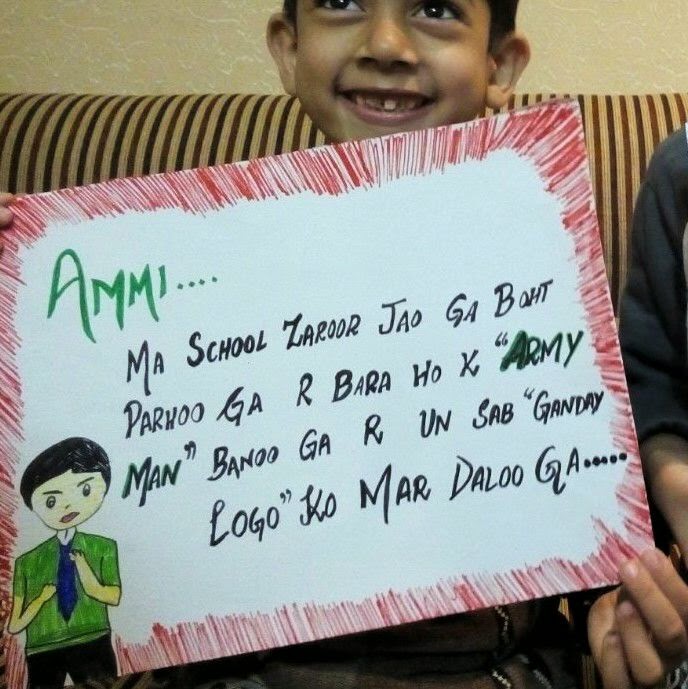 AMMI....
MA SCHOOL ZAROOR JAO GA BOHT
PARHOO GA R BARA HO K "ARMY
MAN" BANOO GA R UN SAB "GANDAY
LOGO" KO MAR DALOO GA.....